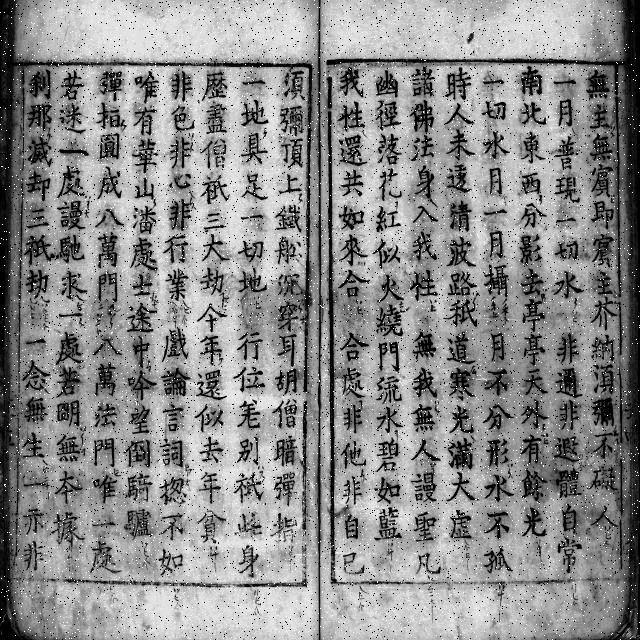 無主無賓即賓主芥納須彌不礙人
一月普現一切水　非邇非遐體自常
南北東西分影去亭亭天外有餘光
一切水月一月攝　月不分形水不孤
時人未透清波路秖道寒光滿大虛
諸佛法身入我性　無我無人謾聖凡
幽徑落花紅似火門流水碧如藍
我性還共如來合　合處非他非自己
須彌頂上鐵舩穿耳胡僧暗彈指
一地具足一切地　行位差別秖些身
歷盡僧祇三大劫今年還似去年貧
非色非心非行業　戲論言詞揔不如
唯有華山潘處士途中吟望倒騎驢
彈指圓成八萬門　八萬法門唯一處
若迷一處謾馳求一處若明無本據
刹那滅却三祇劫　一念無生一亦非